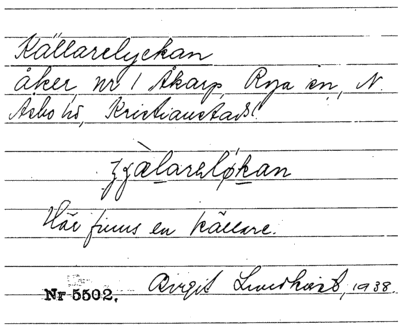 Källarelyckan
åker, nr 1 Åkarp, Röja sn, N.
Åsbo hd, Kristianstads l.
Här finns en källare.
Birgit Lundkvist, 1938.
Nr 5502.